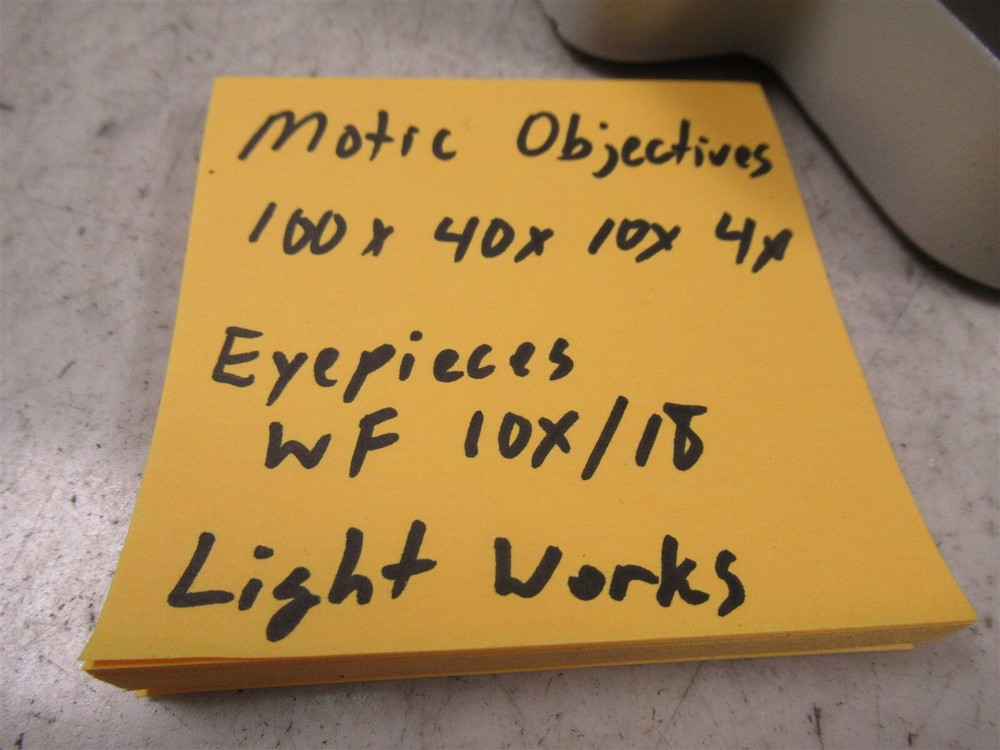 Motic Objectives
100x 40x 10x 4x
Eyepieces
WF 10X/18
Light Works